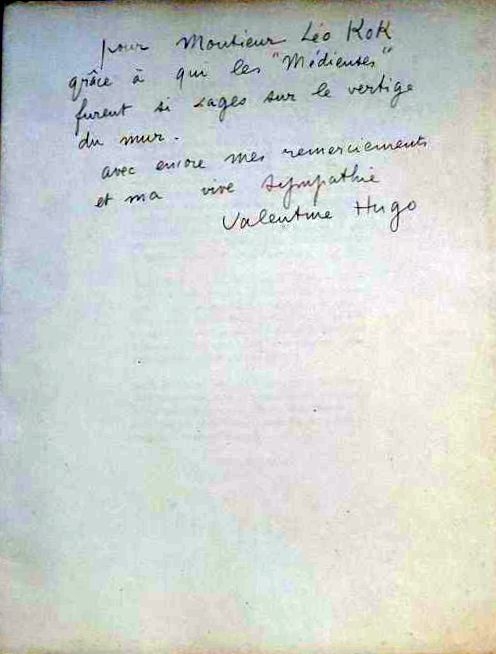 pour Monsieur Léo Kok
grâce à qui les "Médieuses"
furent si sages sur le vertige
du mur.
avec encore mes remerciements
et ma vive sympathie
Valentine Hugo